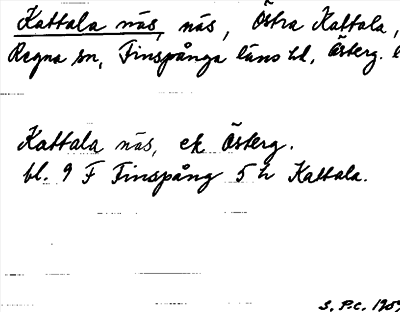 Kattala näs, näs, Östra Kattala,
Regna sn, Finspånga läns hd, Österg. l
Kattala näs, ek Österg.
bl. 9 F Finspång 5 h Kattala.
S. P.C. 1959